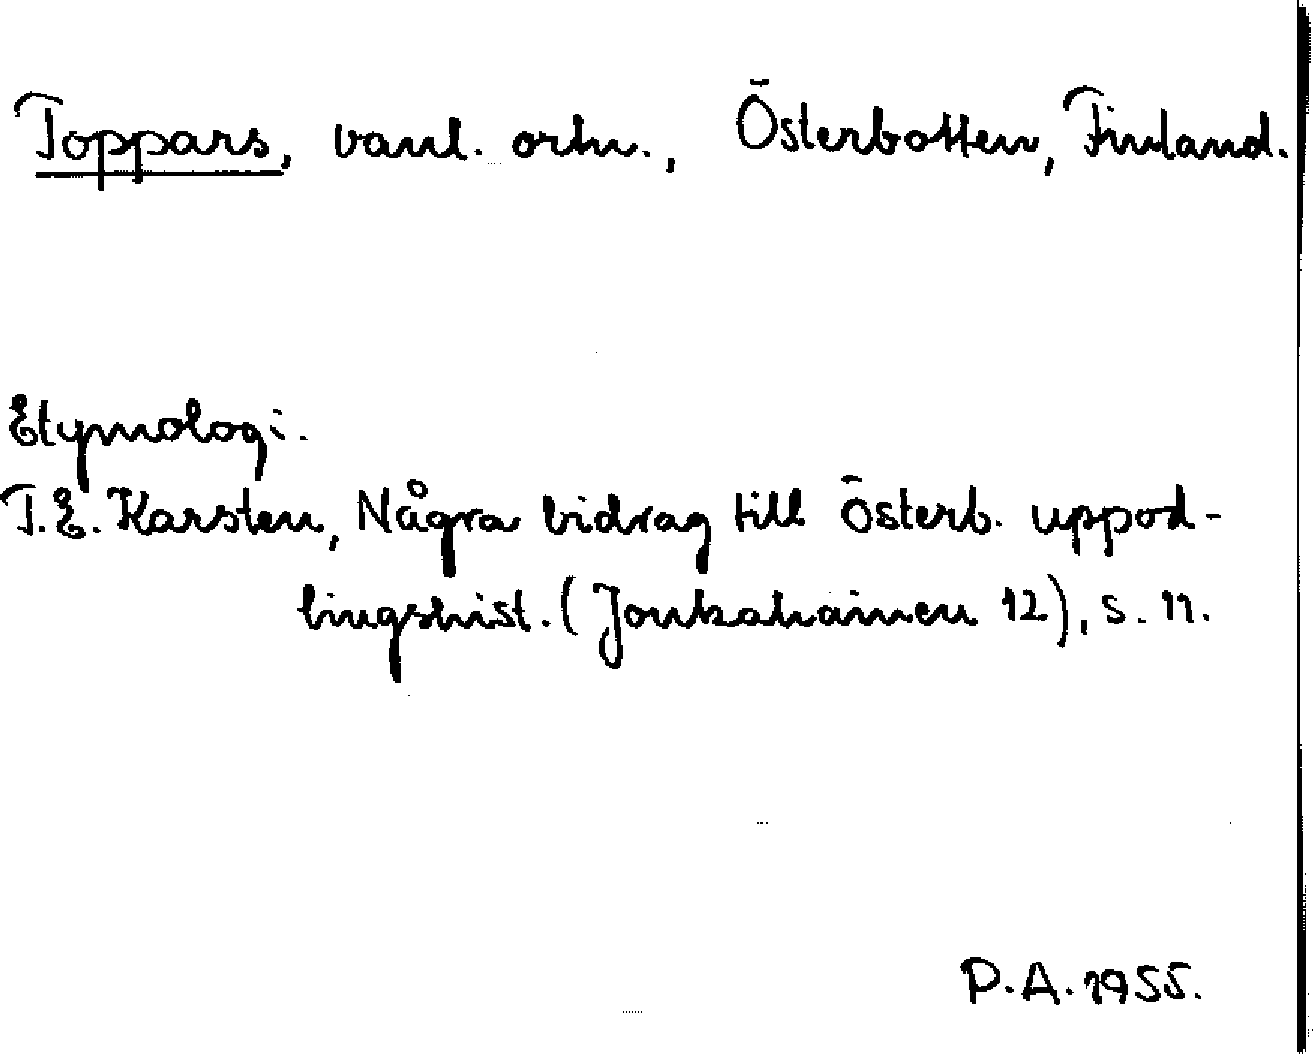 Toppars, vanl. ortn., Österbotten, Finland.
Etymologi.
T.E. Karsten, Några bidrag till Österb. uppod-
lingshist. (Joukahainen 12), s. 11.
P.A. 1955.